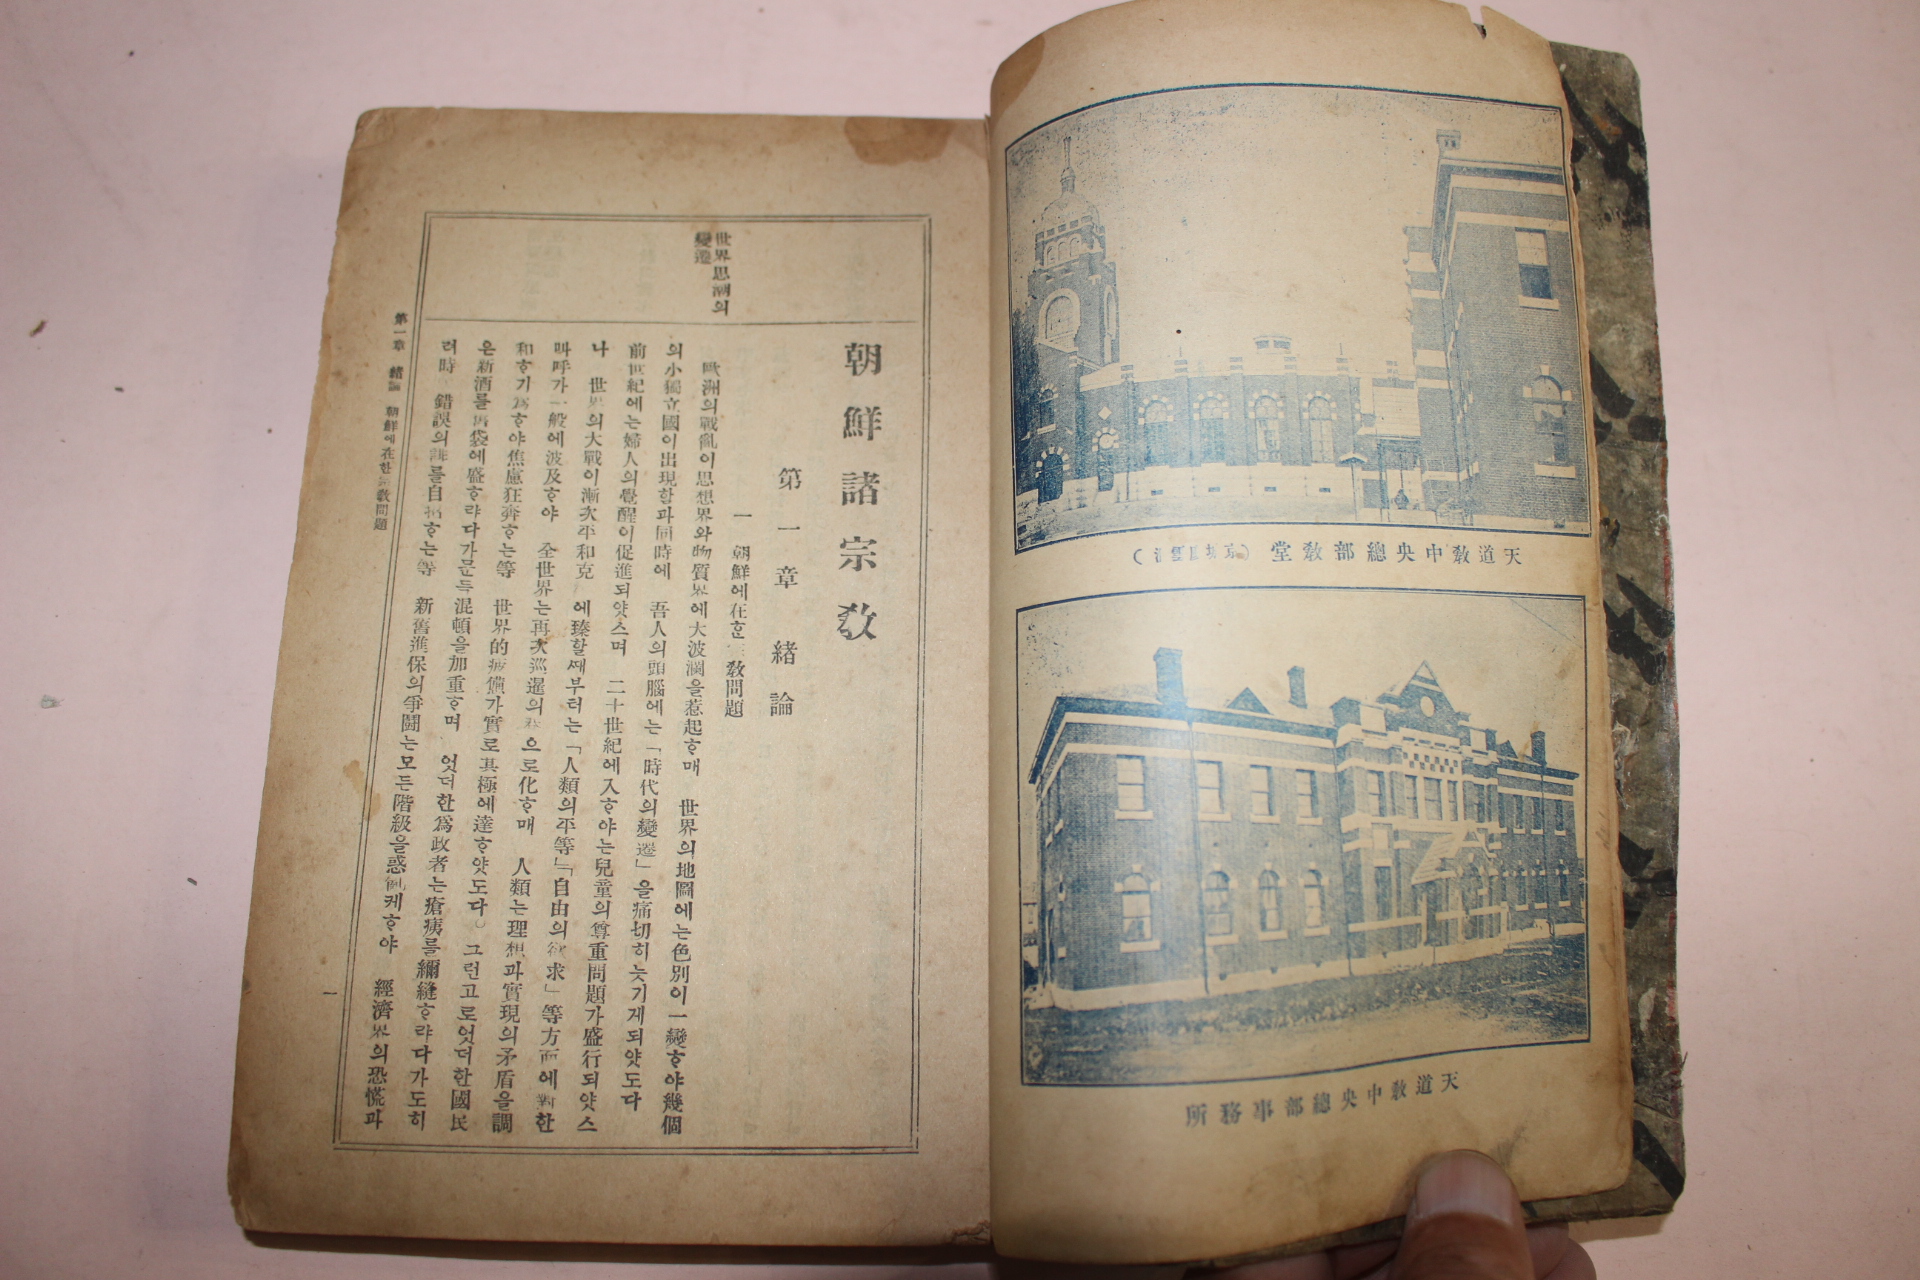 天道敎中央總部敎堂
天道敎中央總部事務所
世界思潮의
變遷
朝鮮諸宗敎
第一章 緖論
一 朝鮮에在한 敎問題
歐洲의戰亂이思想界와物質界에大波瀾을惹起ᄒᆞ매 世界의地圖에는色別이一變ᄒᆞ야幾個
의小獨立國이出現할과同時에 吾人의頭腦에는「時代의變遷」을痛切히늣기게되얏도다
前世紀에는婦人의覺醒이促進되얏스며 二十世紀에入ᄒᆞ야는兒童의尊重問題가盛行되얏스
나 世界의大戰이漸次平和克 에臻할ᄶᅢ부터는「人類의平等」「自由의欲求」等方面에對한
呼가一般에波及ᄒᆞ야 全世界는再次巡邏의 으로化ᄒᆞ매 人類는理想과實現의矛盾을調
和ᄒᆞ기爲ᄒᆞ야焦慮狂奔ᄒᆞ는等 世界的疲憊가實로其極에達ᄒᆞ얏도다。그런고로엇더한國民
은新酒를舊袋에盛ᄒᆞ랴다가문득混頓을加重ᄒᆞ며 엇더한爲政者는瘡痍를彌縫ᄒᆞ랴다가도히
려時 錯誤의 를自招ᄒᆞ는等 新舊進保의爭鬪는모든階級을惑亂케ᄒᆞ야 經濟界의恐慌과
第一章 緖論 朝鮮에在한 敎問題
一